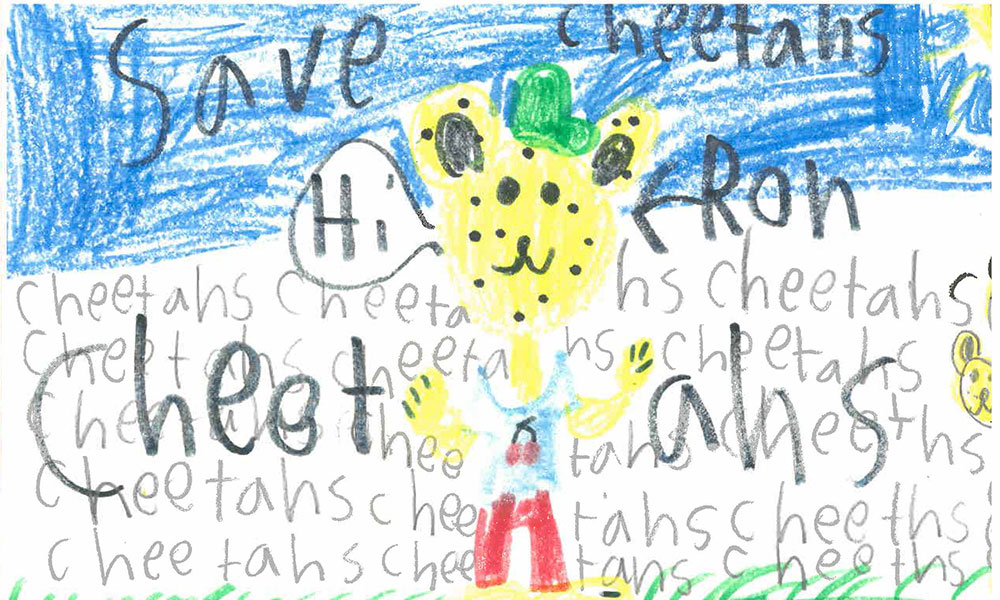 Save cheetahs
Hi
Ron
cheetahs cheeta hs cheetahs
cheetahs cheeta hs cheetahs
cheet ahs
cheetahs chee tahs cheeths
cheetahs chee tahs cheeths
cheetahs chee tahs cheeths